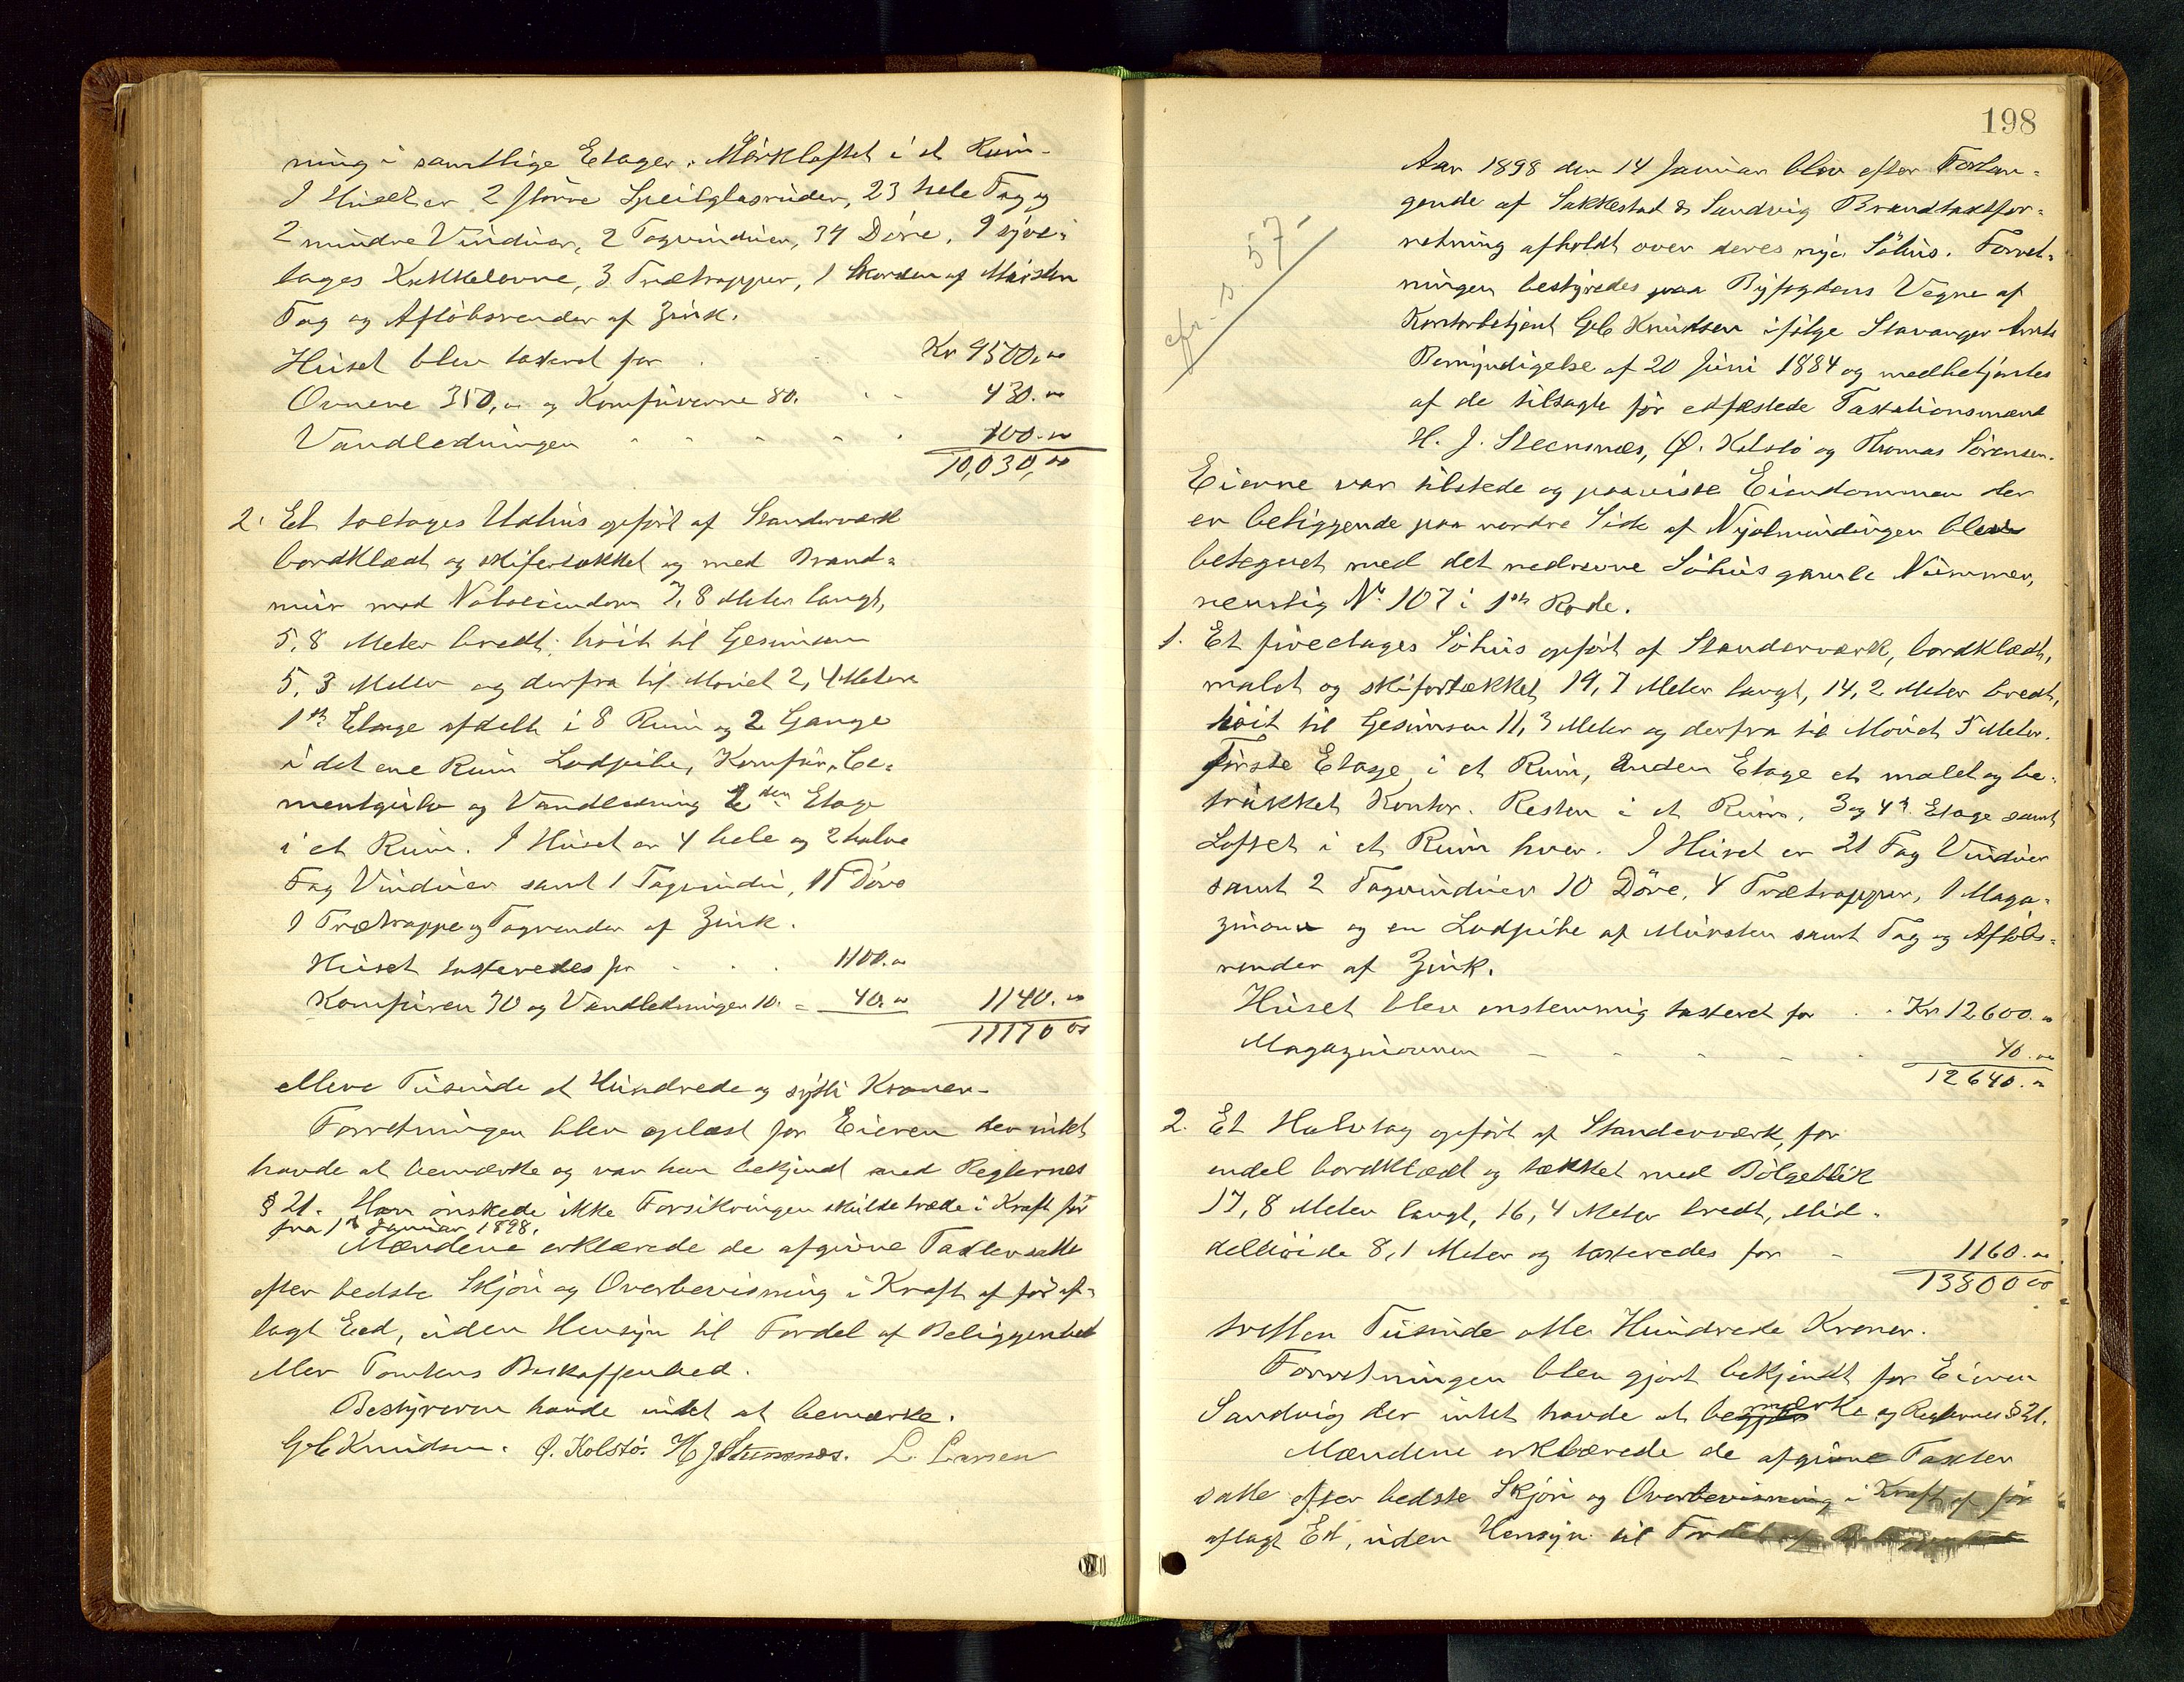 ning i samtlige Etager. Mørkloftet i et Rum.
I Huset er 2 større Speilglasruder, 23 hele Fag og
2 mindre Vinduer, 2 Tagvinduer, 34 Døre, 9
etages Kakkelovne, 3 Trætrapper, 1 Skorsten af Mursten
Tag og Afløbsrender af Zink.
Huset blev taxeret for . . Kr 9500,00
Ovnene 350,00 og Komfurerne 80. . . 430.00
Vandledningen . . . . . 100.00
10,030,00
2. Et toetages Udhus opført af Standerværk
bordklædt og skifertækket og med Brand=
mur mod Naboeiendom 7,8 Meter langt,
5,8 Meter bredt; høit til Gesimsen
5,3 Meter og derfra til Mønet 2,4 Meter
1ste Etage afdelt i 8 Rum og 2 Gange
i det ene Rum Lodpibe, Komfur, Ce=
mentgulv og Vandledning 2den Etage
i et Rum. I Huset er 4 hele og 2 halve
Fag Vinduer samt 1 Tagvindu, 11 Døre
1 Trætrappe og Tagrender af Zink.
Huset taxeredes for . . . 1100.00
Komfuren 30 og Vandledningen 10. = 40.00 1140.00
11170 00
elleve Tusinde et Hundrede og sytti Kroner.
Forretningen blev oplæst for Eieren der intet
havde at bemærke og var han bekjendt med Reglernes
§ 21. Han ønskede ikke Forsikringen skulde træde i Kraft før
fra 1ste Januar 1898.
Mændene erklærede de afgivne Taxter satte
efter bedste Skjøn og Overbevisning i Kraft af før af=
lagt Eed, uden Hensyn til Fordel af Beliggenhed
eller Tomtens Beskaffenhed.
Bestyreren havde intet at bemærke.
Geb Knudsen. Ø. Kolstø. H J Steensnæs. L. Larsen
198
cfr. s. 57
Aar 1898 den 14 Januar blev efter Forlan=
gende af Sakkestad & Sandvig Brandtaxtfor=
retning afholdt over deres nye Søhus. Forret=
ningen bestyredes paa Byfogdens Vegne af
Kontorbetjent Geb Knudsen ifølge Stavanger Amts
Bemyndigelse af 20 Juni 1884 og medbetjentes
af de tilsagte før edfæstede Taxationsmænd
H. J. Steensnæs, Ø. Kolstø og Thomas Sørensen.
Eierne var tilstede og paaviste Eiendommen der
er beliggende paa nordre Side af blev
betegnet med det nedrevne Søhus gamle Nummer,
nemlig No 107 i 1ste Rode.
1. Et fireetages Søhus opført af Standerværk, bordklædt,
malet og skifertækket 19,7 Meter langt, 14,2 Meter bredt,
høit til Gesimsen 11,3 Meter og derfra til Mønet 5 Meter.
Første Etage i et Rum, Anden Etage et malet og be=
trukket Kontor. Resten i et Rum, 3 og 4de Etage samt
Loftet i et Rum hver. I Huset er 21 Fag Vinduer
samt 2 Tagvinduer 10 Døre, 4 Trætrapper, 1 Maga=
zinovn og en Lodpibe af Mursten samt Tag og Afløbs=
render af Zink.
Huset blev enstemmig taxeret for . . Kr 12600.00
Magazinovnen . . . . . 40.00
12640.00
2. Et Halvtag opført af Standerværk, for
endel bordklædt og tækket med Bølgeblik
17,8 Meter langt, 16,4 Meter bredt, Mid=
delhøide 8,1 Meter og taxeredes for . 1160.00
13800 00
tretten Tusinde otte Hundrede Kroner.
Forretningen blev gjort bekjendt for Eieren
Sandvig der intet havde at bemærke og Reglernes § 21.
Mændene erklærede de afgivne Taxter
satte efter bedste Skjøn og Overbevisning i Kraft af før
aflagt Ed, uden Hensyn til Fordel af Beliggenhed